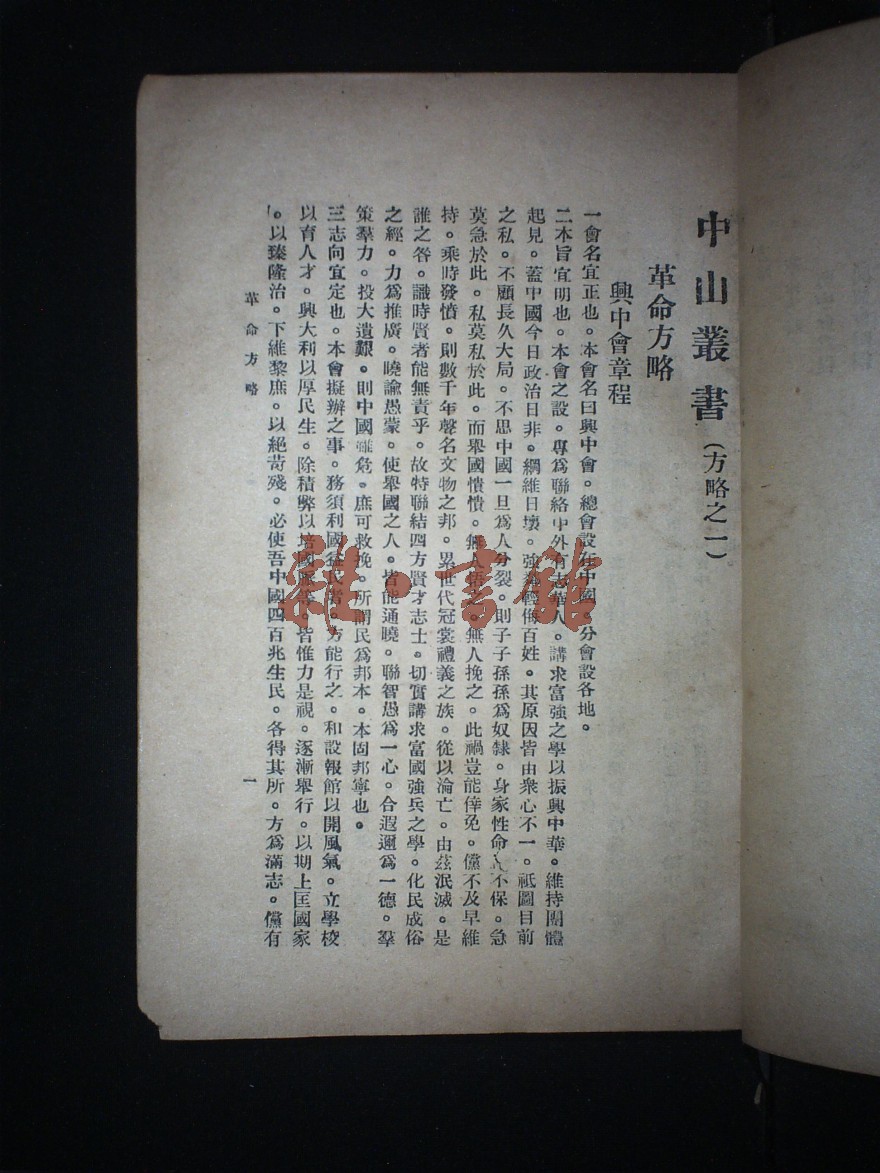 中山叢書(方略之一)
革命方略
興中會章程
一會名宜正也。本會名曰興中會。總會設在中國。分會設各地。
二本旨宜明也。本會之設。專爲聯絡中外有志華人。講求富強之學以振興中華。維持團體
起見。蓋中國今日政治日非。綱維日壞。強鄰輕侮百姓。其原因皆由衆心不一。祇圖目前
之私。不顧長久大局。不思中國一旦爲人分裂。則子子孫孫爲奴隸。身家性命 不保。急
莫急於此。私莫私於此。而舉國憒憒。無人悟之。無人挽之。此禍豈能倖免。儻不及早維
持。乘時發憤。則數千年聲名文物之邦。累世代冠裳禮義之族。從以淪亡。由茲泯滅。是
誰之咎。識時賢者能無責乎。故特聯結四方賢才志士。切實講求富國強兵之學。化民成俗
之經。力爲推廣。曉諭愚蒙。使舉國之人。皆能通曉。聯智愚爲一心。合遐邇爲一德。羣
策羣力。投大遺艱。則中國雖危。庶可救挽。所謂民爲邦本。本固邦寧也。
三志向宜定也。本會擬辦之事。務須利國益民者。方能行之。和設報館以開風氣。立學校
以育人才。興大利以厚民生。除積弊以培國脈等。皆惟力是視。逐漸舉行。以期上匡國家
。以臻隆治。下維黎庶。以絕苛殘。必使吾中國四百兆生民。各得其所。方爲滿志。儻有
革命方略
一
雜·書館